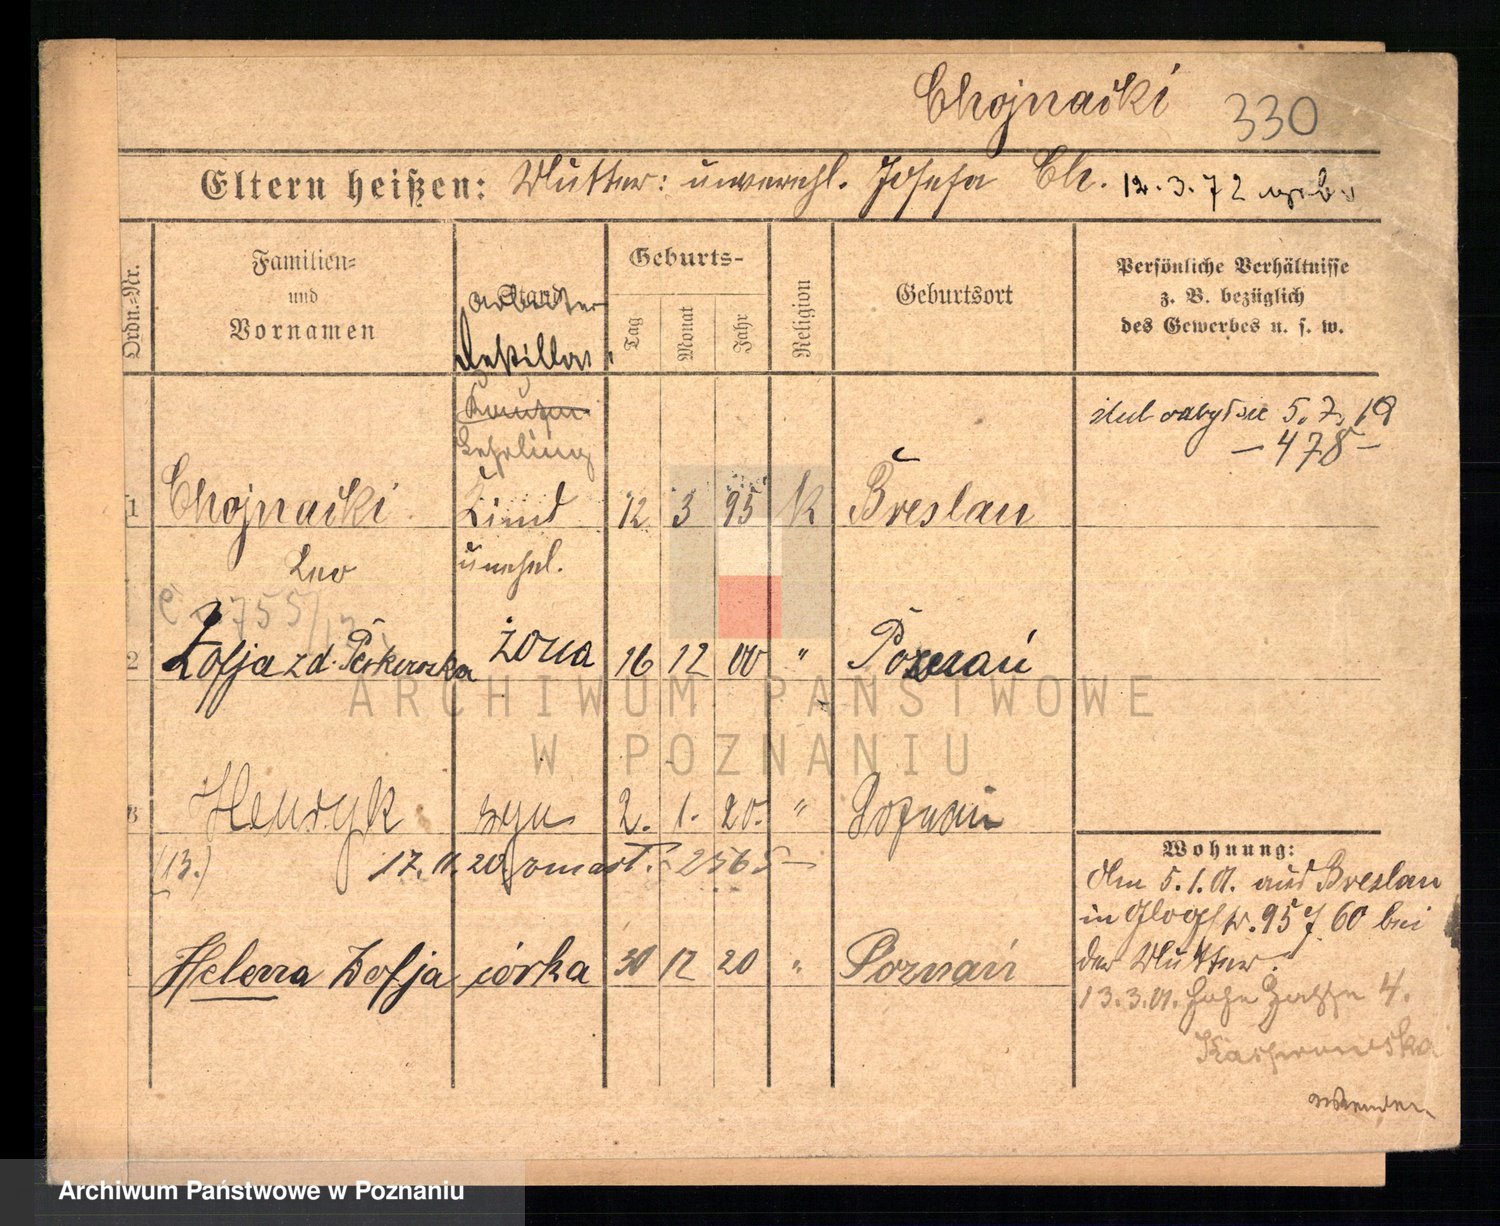 Chojnacki 330
Eltern heißen: Mutter: unverehl. Josefa Ch. 12.3.72
Ordn.-Nr.
Familien-
und
Vornamen
Stand
arbeiter
Destillat
Geburts-
Tag
Monat
Jahr
Religion
Geburtsort
Persönliche Verhältnisse
z. B. bezüglich
des Gewerbes u. s. w.
Kaufm.
Lehrling
ślub odbył się 5.7.19
– 478 –
1 Chojnacki Kind 12 3 95 K Breslau
Leo unehel.
2 Zofja zd. żona 16 12 00 " Poznań
3 Henryk syn 2. 1. 20. " Poznań
(13.) 17.11.20 zmarł. – 2565 –
Helena Zofja córka 30 12 20 " Poznań
Wohnung:
Am 5.1.01. aus Breslau
in Glogstr. 95 60 bei
der Mutter.
13.3.01. Hohe Gasse 4.
wenden
ARCHIWUM PAŃSTWOWE
W POZNANIU
Archiwum Państwowe w Poznaniu